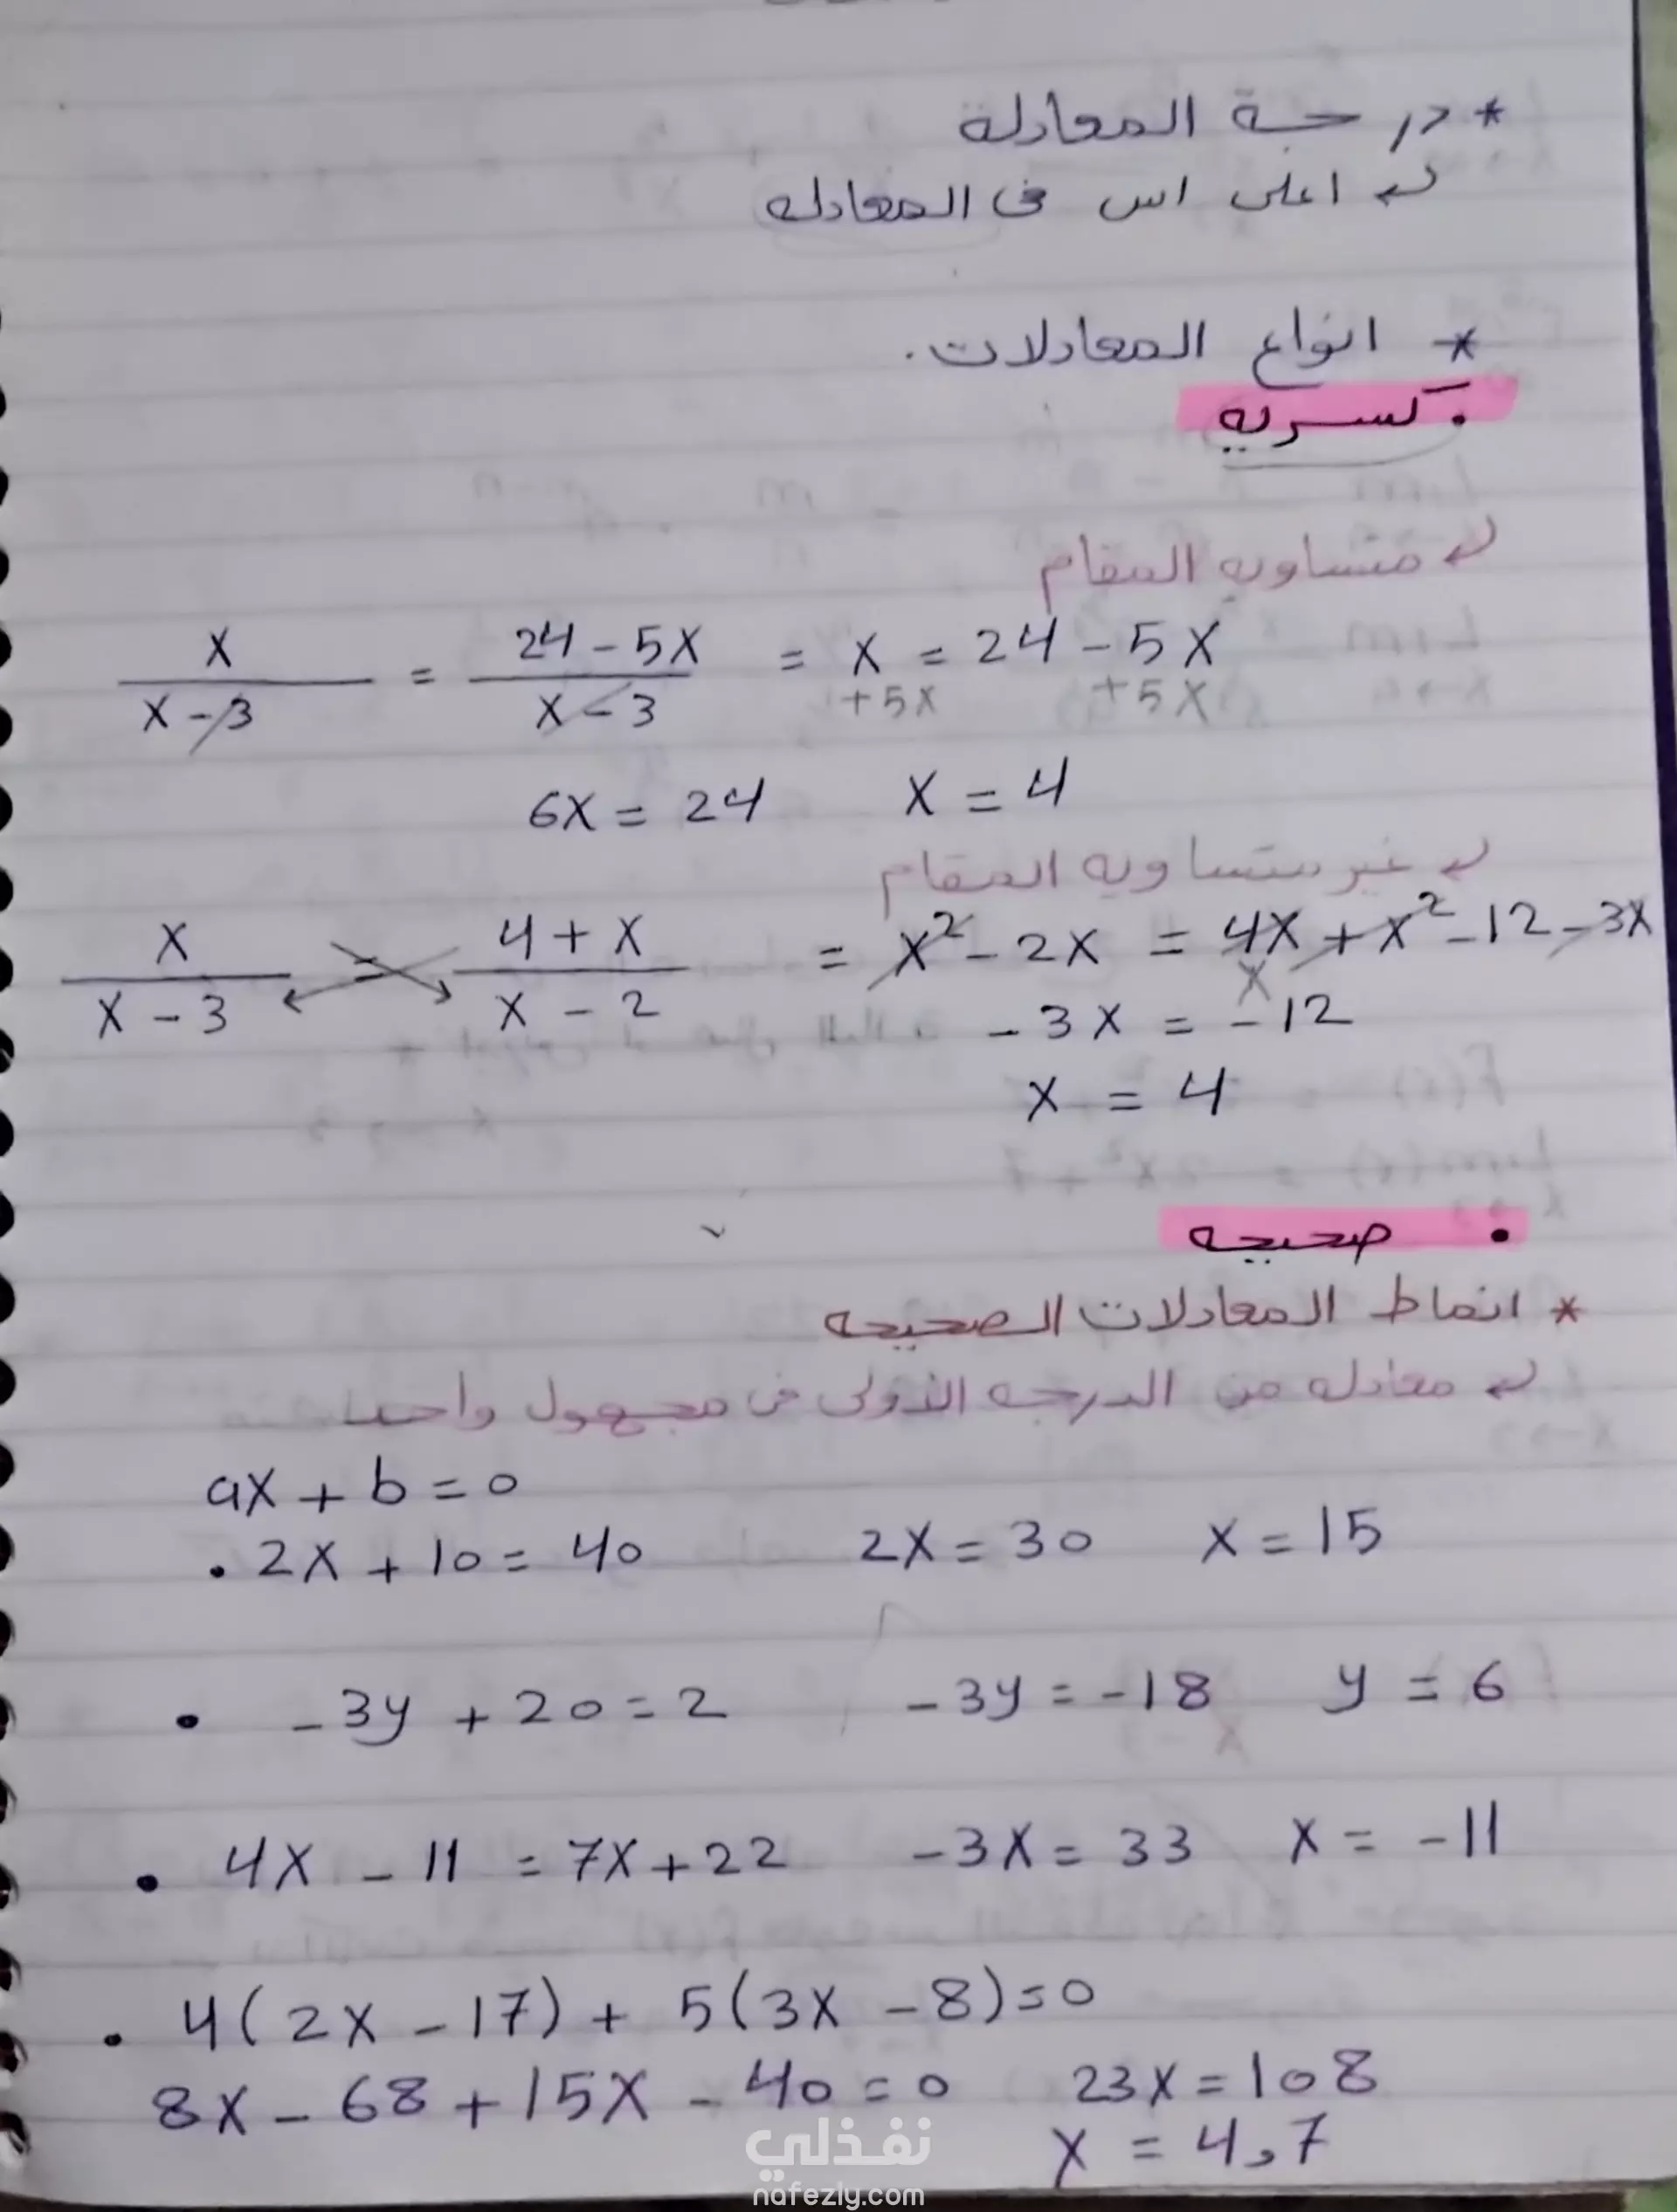 * درجة المعادلة
↳ اعلى اس فى المعادله
* انواع المعادلات.
• كسريه
↳ متساويه المقام
x/(x-3) = (24-5x)/(x-3) = x = 24-5x
+5x +5x
6x = 24 x = 4
↳ غير متساويه المقام
x/(x-3) = (4+x)/(x-2) = x² - 2x = 4x + x² - 12 - 3x
x
-3x = -12
x = 4
• صحيحه
* انماط المعادلات الصحيحه
↳ معادله من الدرجه الأولى فى مجهول واحد
ax + b = 0
• 2x + 10 = 40 2x = 30 x = 15
• -3y + 20 = 2 -3y = -18 y = 6
• 4x - 11 = 7x + 22 -3x = 33 x = -11
• 4(2x - 17) + 5(3x - 8) = 0
8x - 68 + 15x - 40 = 0 23x = 108
x = 4,7
نفذلي
nafezly.com